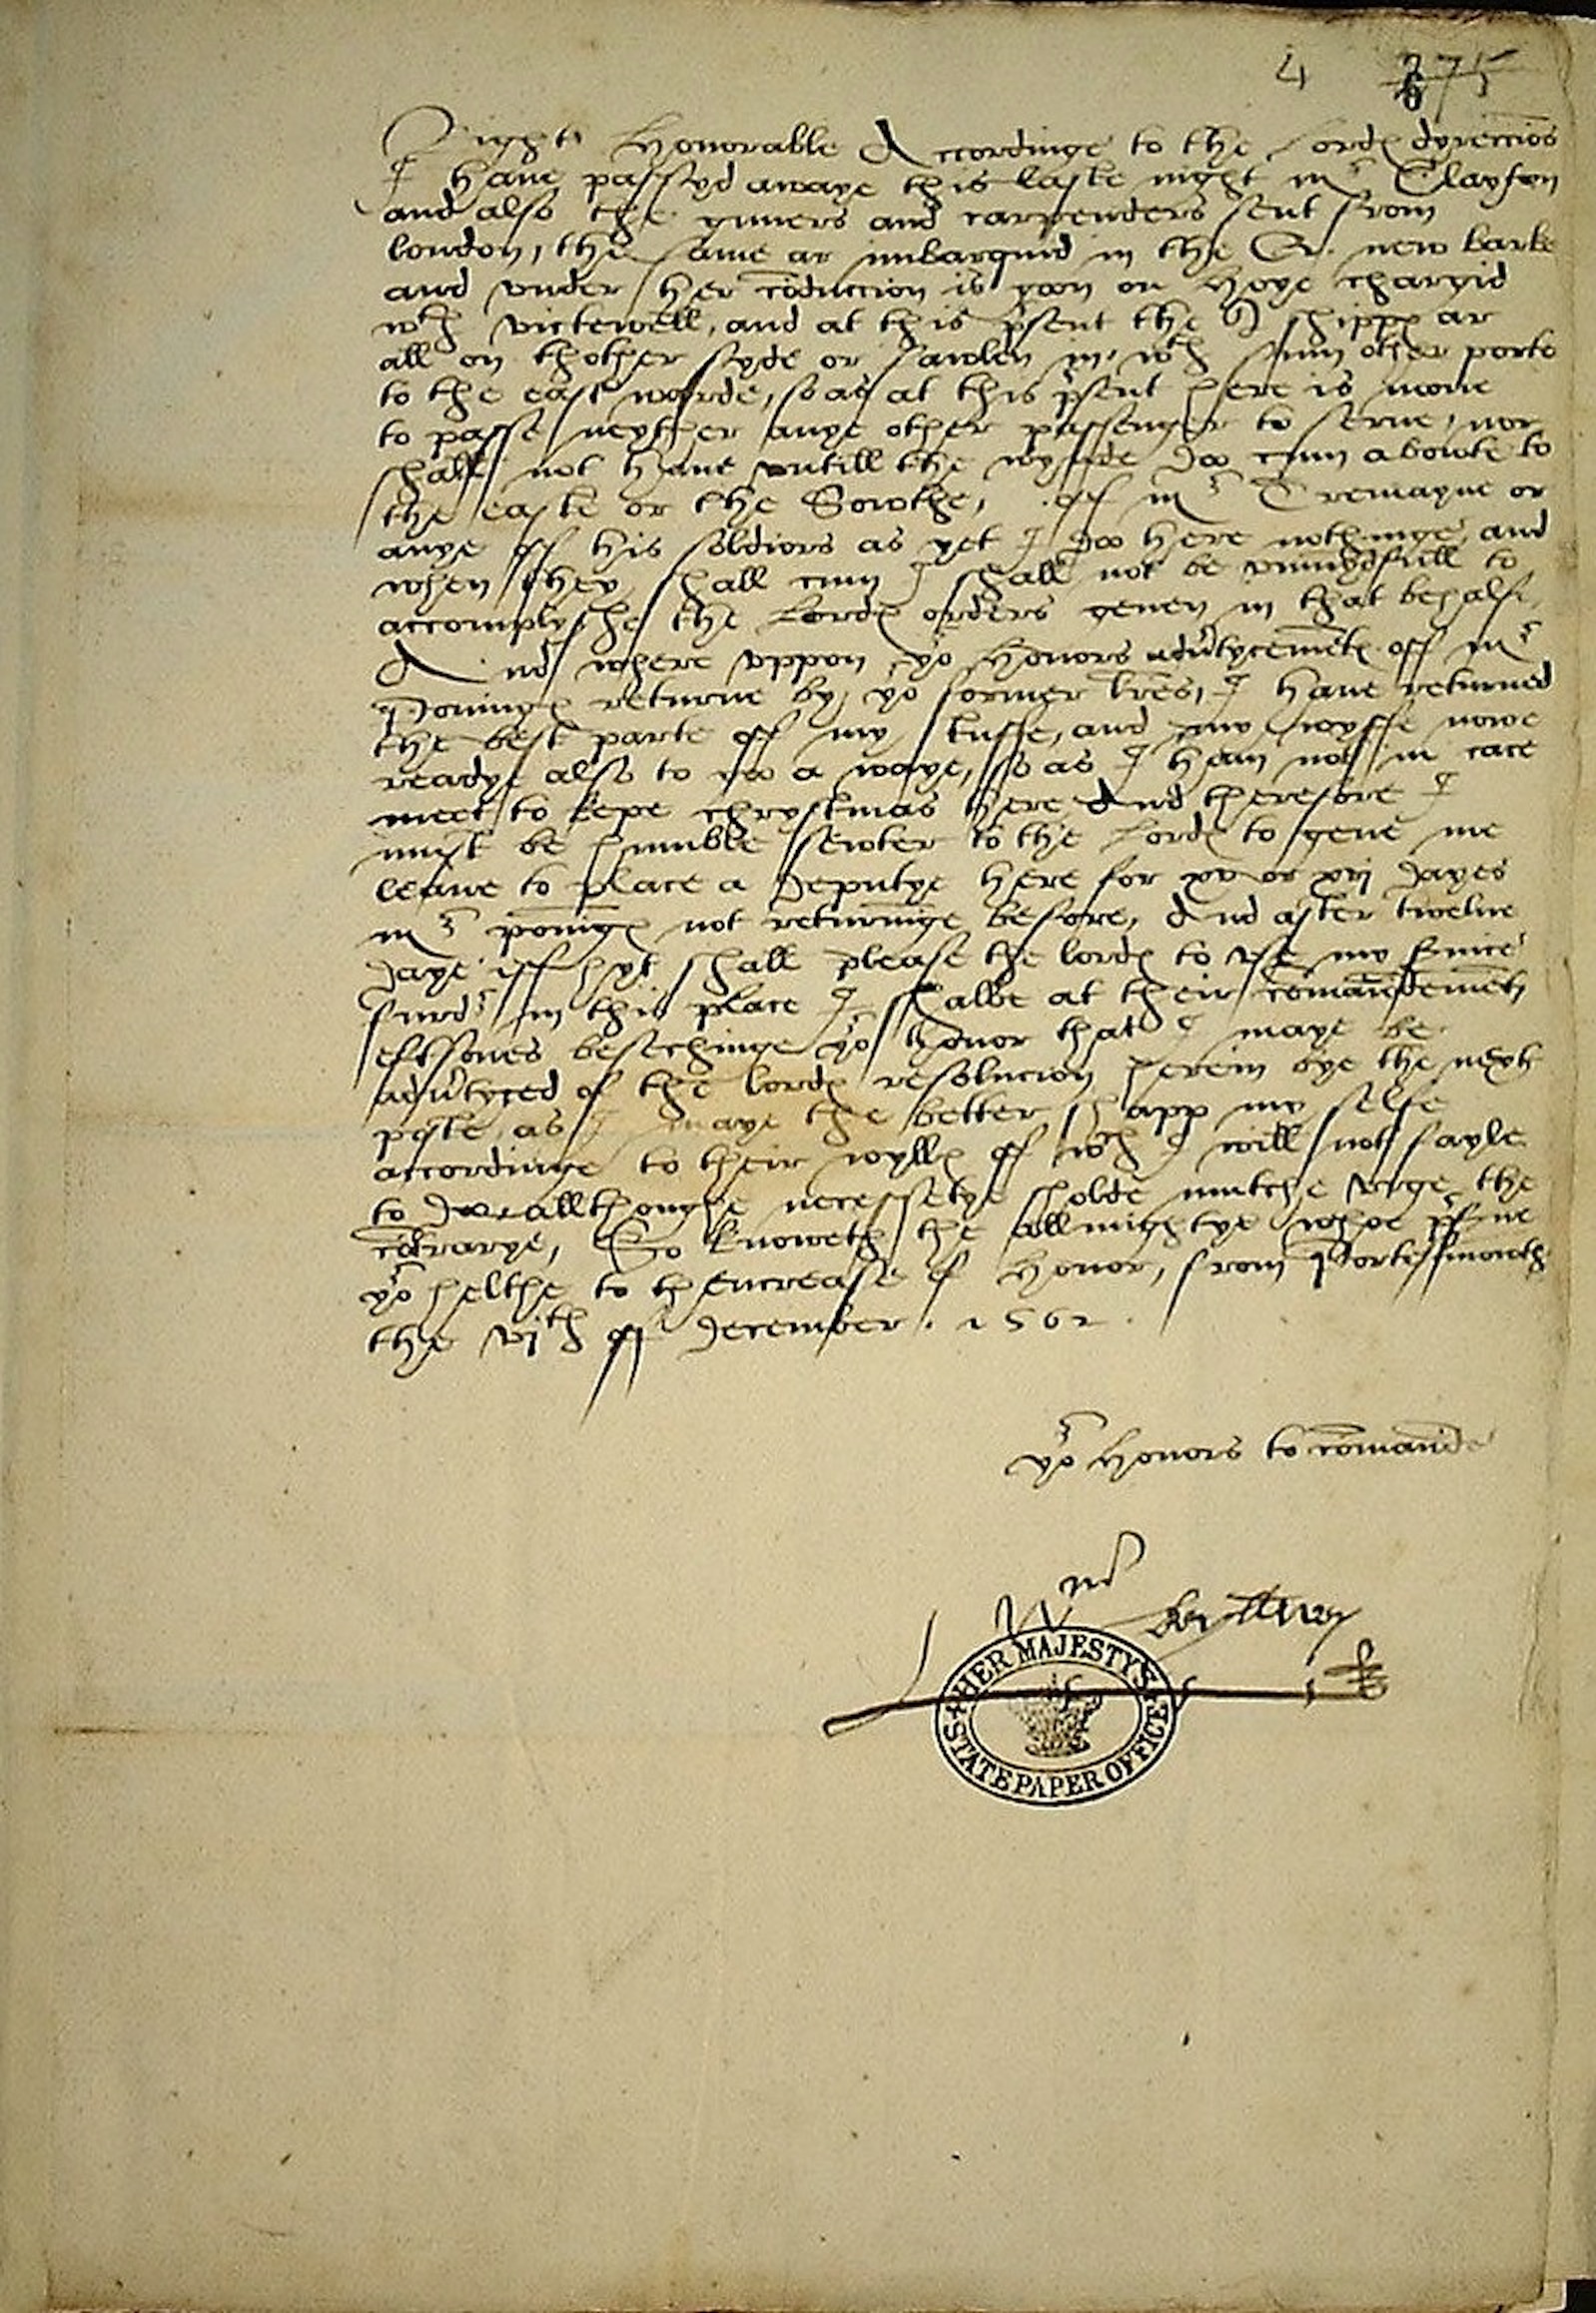 4 275
6
Right honorable Accordinge to the Lordes dyreccios
I have passyd awaye this laste night mr Clayton
and also the guners and carpenders sent from
london, the same ar imbarquid in the Q. new barke
and vnder her coduccion is goon on hoye chargid
wth victewell, and at this psent the Q shippes ar
all on thother syde or fawlen in wth sum other porte
to the east warde, so as at this psent here is none
to passe neyther anye other passenger to serve, nor
shall not have vntill the wynde doo cum abowte to
the easte or the Sowthe, off mr Tremayne or
anye off his soldiors as yet I doo here nothinge, and
when they shall cum I shall not be vnmyndfull to
accomplyshe the Lordes orders geven in that behalfe,
And where vppon yor honors advrtycemetes off mr
Poninges returne by yor former lres, I have returned
the best parte off my stuffe, and my wyffe nowe
readye also to goo a waye, so as I ham not in cace
meet to kepe chrystmas here, And therefore I
must be humble sewter to the Lordes to geve me
leave to place a deputye here for xv or xvj dayes
mr poninges not returninge before, And after twelve
daye iff hyt shall please the lordes to vse my service
furdr in this place I shalbe at their comaundementes
eftsones besechinge yor honor that I maye be
advrtyced of the lordes resolucion herein bye the next
poste, as I maye the better shapp my selfe
accordinge to their wylles off wch I will not fayle
to doo allthoughe necessetye sholde mutche vrge the
cotrarye, So knoweth the allmightye whoe psrve
yor helthe to thencrease of honor, from Portesmowth
the vjth off december . 1562 .
yor honors to comaunde
Wm
HER MAJESTY'S
STATE PAPER OFFICE